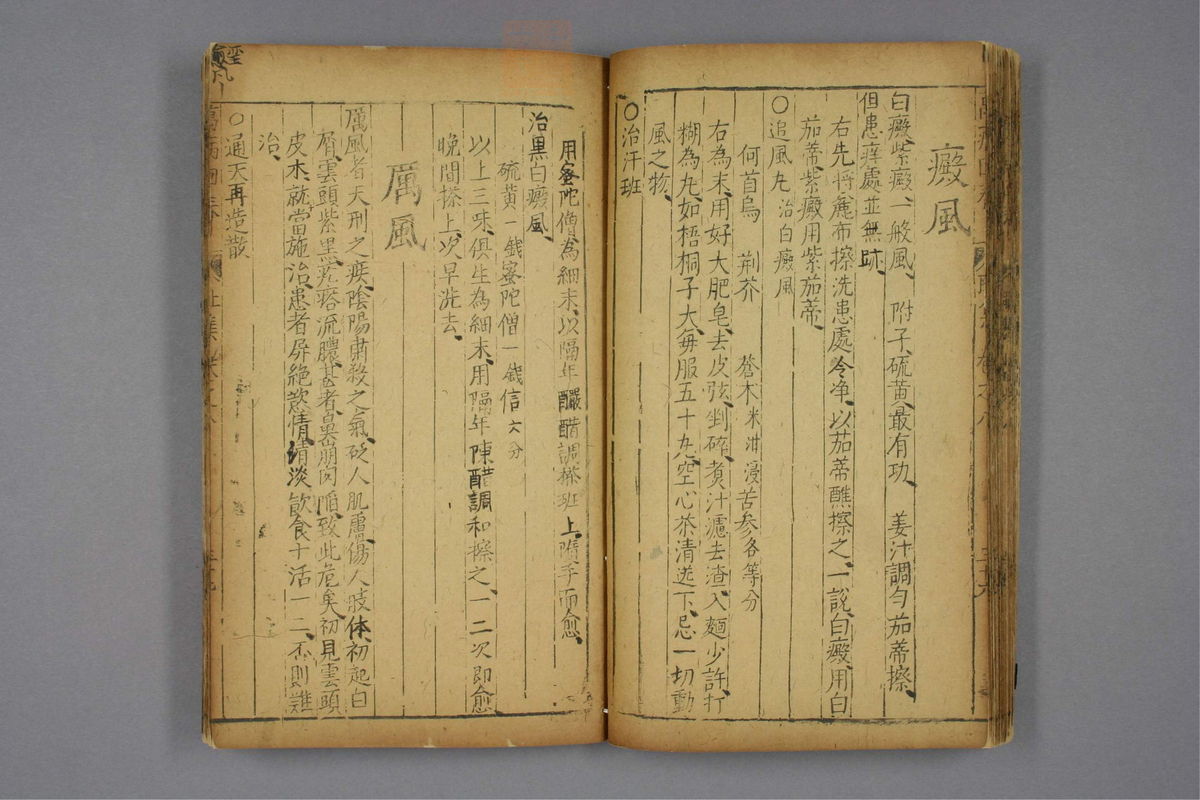 癜風
白癜紫癜一般風、附子硫黃最有功、姜汁調勻茄蒂擦、
但患痒處並無跡、
右先將麄布擦洗患處令净、以茄蒂醮擦之、一說白癜、用白
茄蒂、紫癜用紫茄蒂、
〇追風丸 治白癜風
何首烏 荆芥 蒼木 米泔浸 苦參各等分
右為末、用好大肥皂、去皮弦、剉碎、煮汁濾去渣、入麵少許、打
糊為丸、如梧桐子大、每服五十丸、空心茶清送下、忌一切動
風之物、
〇治汗班
用蜜陀僧為細末、以隔年釅醋調搽班上、隨手而愈、
治黑白癜風、
硫黃一錢 蜜陀僧一錢 信六分
以上三味、俱生為細末、用隔年陳醋調和擦之、一二次即愈
晚間搽上、次早洗去、
厲風
厲風者、天刑之疾、陰陽肅殺之氣、砭人肌膚、傷人肢体、初起白
屑雲頭紫黑、疙瘩流膿、甚者鼻崩肉陷、致此危矣、初見雲頭
皮木、就當施治、患者屏絶慾情、清淡飲食、十活一二、否則難
治、
〇通天再造散